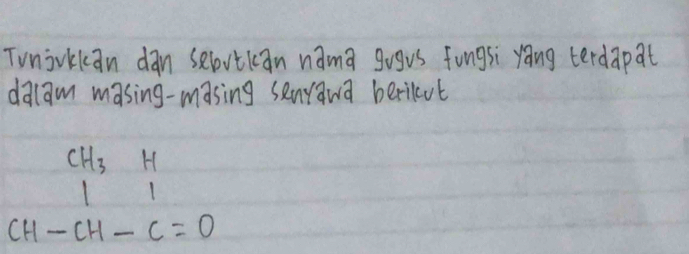 Tunjukkan dan sebutkan nama gugus fungsi yang terdapat
dalam masing-masing senyawa berikut
CH3 H
| |
CH - CH - C = O